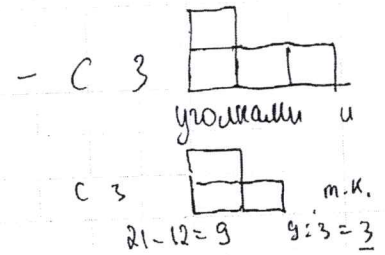 - С 3
уголками и
с 3
т.к.
21-12=9 9:3=3